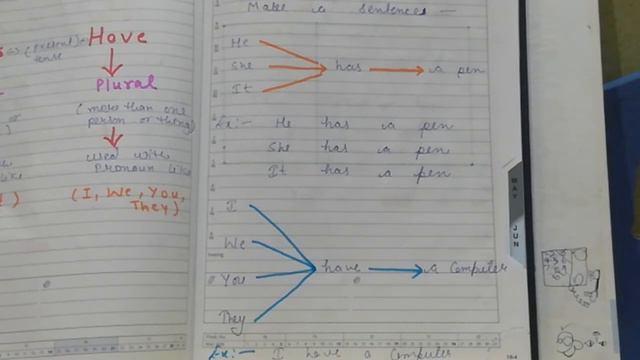 (present)
tense
Hove
Plural
(more than one
person or thing)
used with
pronoun like
(I, We, You,
They)
Make a sentences -
He
She
It
has
a pen
Ex:- He has a pen
She has a pen
It has a pen
I
We
You
They
have
a Computer
Ex:- I have a Computer
MAY
JUN